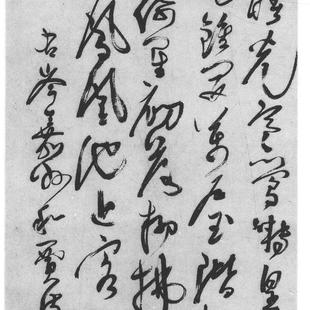 曙光寒鶯囀皇
鐘開萬戶玉階
佩星初落柳拂
鳳凰池上客
右岑嘉州和賈